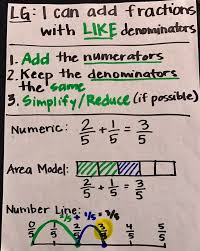 LG: I can add fractions
with LIKE denominators
1. Add the numerators
2. Keep the denominators
the same
3. Simplify/Reduce (if possible)
Numeric: 2/5 + 1/5 = 3/5
Area Model:
2/5 + 1/5 = 3/5
Number Line: 2/5 + 1/5 = 3/5
0/5 1/5 2/5 3/5 4/5 5/5